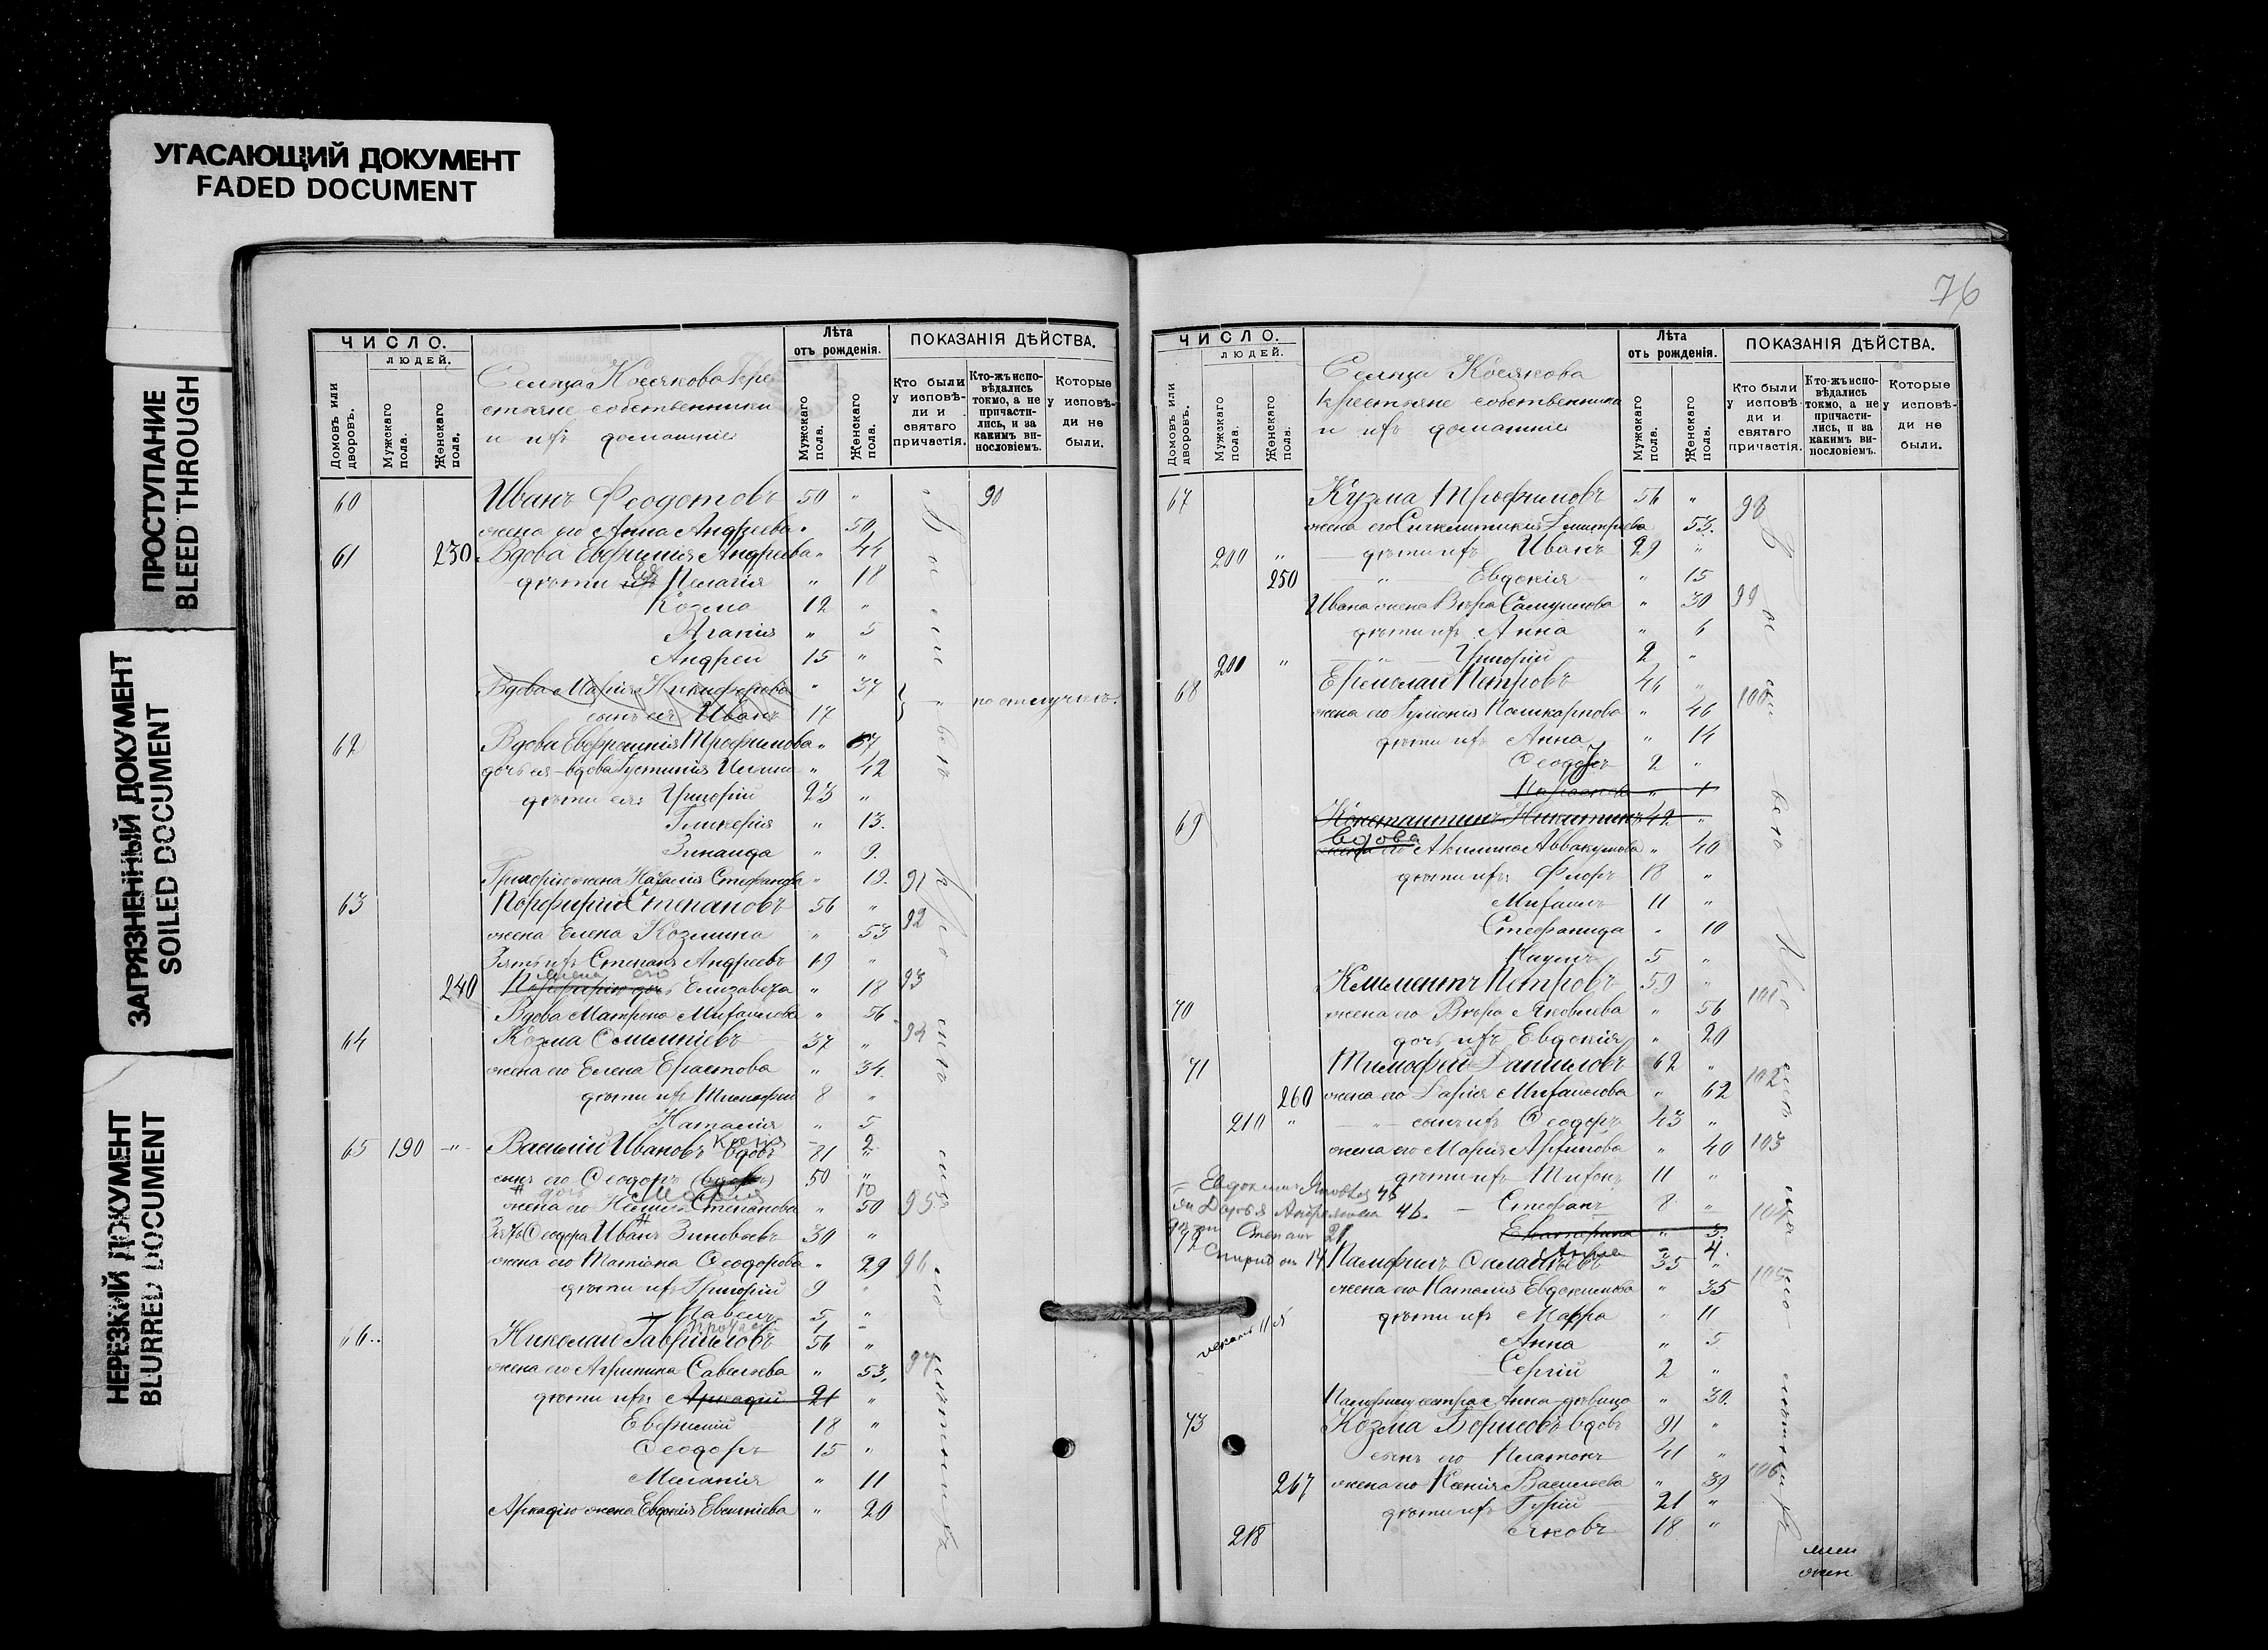 УГАСАЮЩИЙ ДОКУМЕНТ
FADED DOCUMENT
ПРОСТУПАНИЕ
BLEED THROUGH
ЗАГРЯЗНЕННЫЙ ДОКУМЕНТ
SOILED DOCUMENT
НЕРЕЗКИЙ ДОКУМЕНТ
BLURRED DOCUMENT
ЧИСЛО.
ЛЮДЕЙ.
Домовъ или дворовъ.
Мужскаго пола.
Женскаго пола.
Сельца Косякова Кре
стьяне собственники
и ихъ домашніе
Лѣта
отъ рожденія.
Мужскаго пола.
Женскаго пола.
ПОКАЗАНІЯ ДѢЙСТВА.
Кто были у исповѣ-ди и святаго причастія.
Кто-жъ испо-вѣдались токмо, а не причасти-лись, и за какимъ ви-нословіемъ.
Которые у исповѣ-ди не были.
60 Иванъ Ѳеодотовъ 50 " 90
жена его Анна Андреева " 50
61 230 Вдова Евфимія Андреева " 44
дѣти ея Пелагія " 18
Козма 12 "
Агапія " 5
Андрей 15 "
Вдова Марія Никифорова " 37
сынъ ея Иванъ 17 " по отлучкѣ.
62 Вдова Евфросинія Трофимова " 67
дочь ея вдова Іустинія Ильина " 42
дѣти ея: Григорій 23 "
Гликерія " 13.
Зинаида " 9.
Григорію жена Наталія Стефанова " 19. 91
63 Порфирій Степановъ 56 " 92
жена Елена Козмина " 53
Зять ихъ Степанъ Андреевъ 19 "
жена его
240 Порфирію дочь Елизавета " 18 93
Вдова Матрона Михаилова " 56
64 Козма 37 " 94
жена его Елена Ерастова " 34.
дѣти ихъ Тимофей 8 "
Наталія " 5
Ксенія 2
65 190 " Василій Ивановъ вдовъ 81 "
сынъ его Ѳеодоръ (вдовъ) 50 "
дочь Марія 10
жена его Степанова " 50 95
Зять Ѳеодора Иванъ Зиновьевъ 30 "
жена его Татіана Ѳеодорова " 29 96
дѣти ихъ Григорій 9 "
Павелъ 5 "
66 Николай Гавриловъ 56 "
жена его Агрипина Савельева " 53. 97
дѣти ихъ: Аркадій 21 "
Евфимій 18 "
Ѳеодоръ 15 "
Меланія " 11
Аркадію жена Евдокія " 20
76
ЧИСЛО.
ЛЮДЕЙ.
Домовъ или дворовъ.
Мужскаго пола.
Женскаго пола.
Сельца Косякова
крестьяне собственники
и ихъ домашніе
Лѣта
отъ рожденія.
Мужскаго пола.
Женскаго пола.
ПОКАЗАНІЯ ДѢЙСТВА.
Кто были у исповѣ-ди и святаго причастія.
Кто-жъ испо-вѣдались токмо, а не причасти-лись, и за какимъ ви-нословіемъ.
Которые у исповѣ-ди не были.
67 Кузма Трофимовъ 56 " 98
жена его Сигклитикія Димитріева " 53.
200 " дѣти ихъ Иванъ 29 "
250 " Евдокія " 15
Ивана жена Вѣра Самуилова " 30 99
дѣти ихъ Анна " 6
200 " " Григорій 2 "
68 Ермолай Петровъ 46 " 100
жена его Іуліанія Поликарпова " 46
дѣти ихъ Анна " 14
Ѳеодоръ 2 "
Параскева " 1
69 Константинъ Никитинъ 42 "
вдова
жена его Акилина Аввакумова " 40
дѣти ихъ: Флоръ 18 "
Михаилъ 11 "
Стефанида " 10
Наумъ 5 "
70 Климентъ Петровъ 59 " 101
жена его Вѣра Яковлева " 56
дочь ихъ Евдокія " 20
71 Тимофей Даниловъ 62 " 102
260 жена его Дарія Михаилова " 62
210 " " сынъ ихъ Ѳеодоръ 43 "
жена его Марія Архипова " 40 103
дѣти ихъ Тихонъ 11 "
Стефанъ 8 " 104
Екатерина " 3.
Анна " 4.
Дарья 46.
Степанъ 21
14
Памфилъ 35 "
жена его Наталія Евдокимова " 35 105
дѣти ихъ Мавра " 11
Анна " 5
Сергій 2 "
Памфилу сестра Анна дѣвица " 30.
73 Козма Борисовъ вдовъ 91 "
сынъ его Платонъ 41 "
267 жена его Ксенія Васильева " 39 106
дѣти ихъ Гурій 21 "
218 Яковъ 18 "